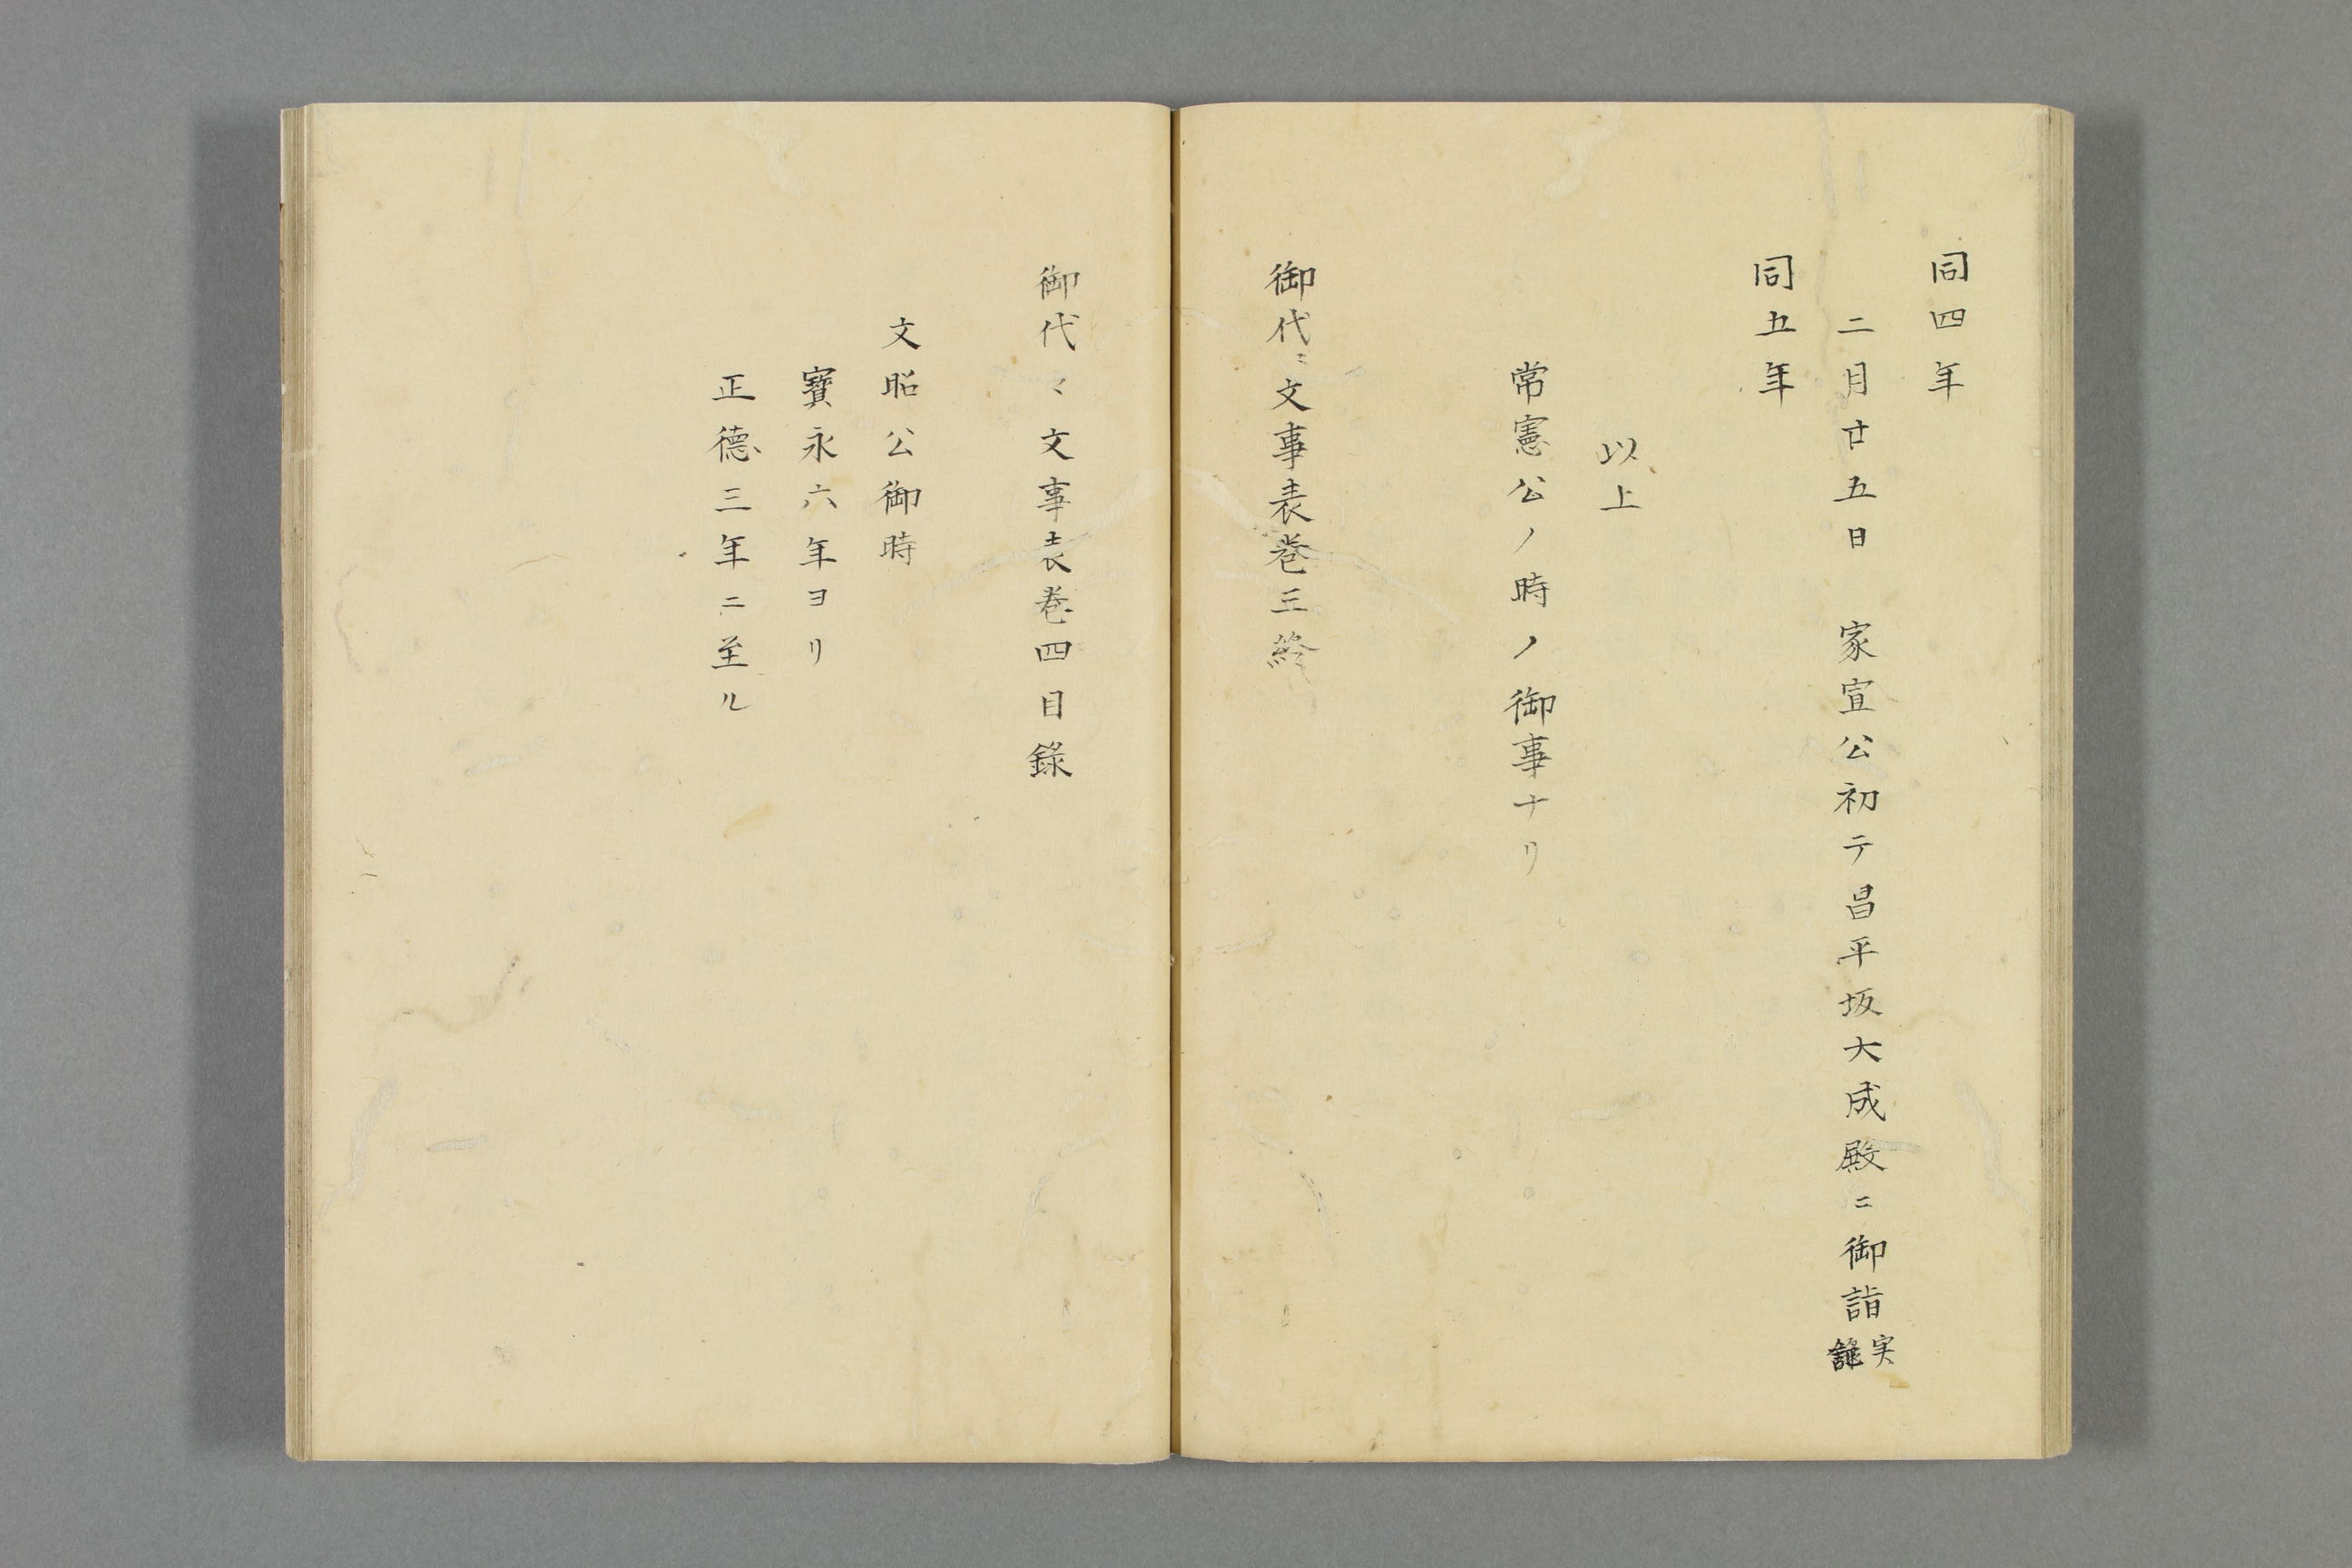 同四年
二月廿五日 家宣公初テ昌平坂大成殿ニ御詣 実録
同五年
以上
常憲公ノ時ノ御事ナリ
御代〻文事表巻三終
御代〻文事表巻四目錄
文昭公御時
寶永六年ヨリ
正德三年ニ至ル